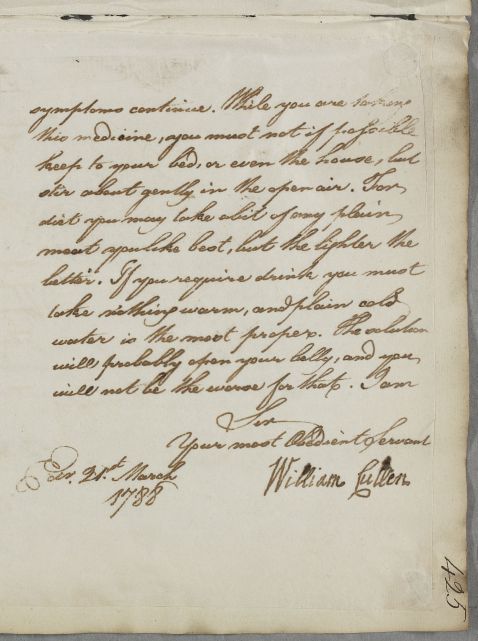 symptoms continue. While you are taking
this medicine, you must not if possible
keep to your bed, or even the house, but
stir about gently in the open air. For
diet you may take a bit of any plain
meat you like best, but the lighter the
better. If you require drink you must
take nothing warm, and plain cold
water is the most proper. The solution
will probably open your belly, and you
will not be the worse for that. I am
Sir
Your most Obedient Servant
William Cullen
Edr. 21.st March
1788
425